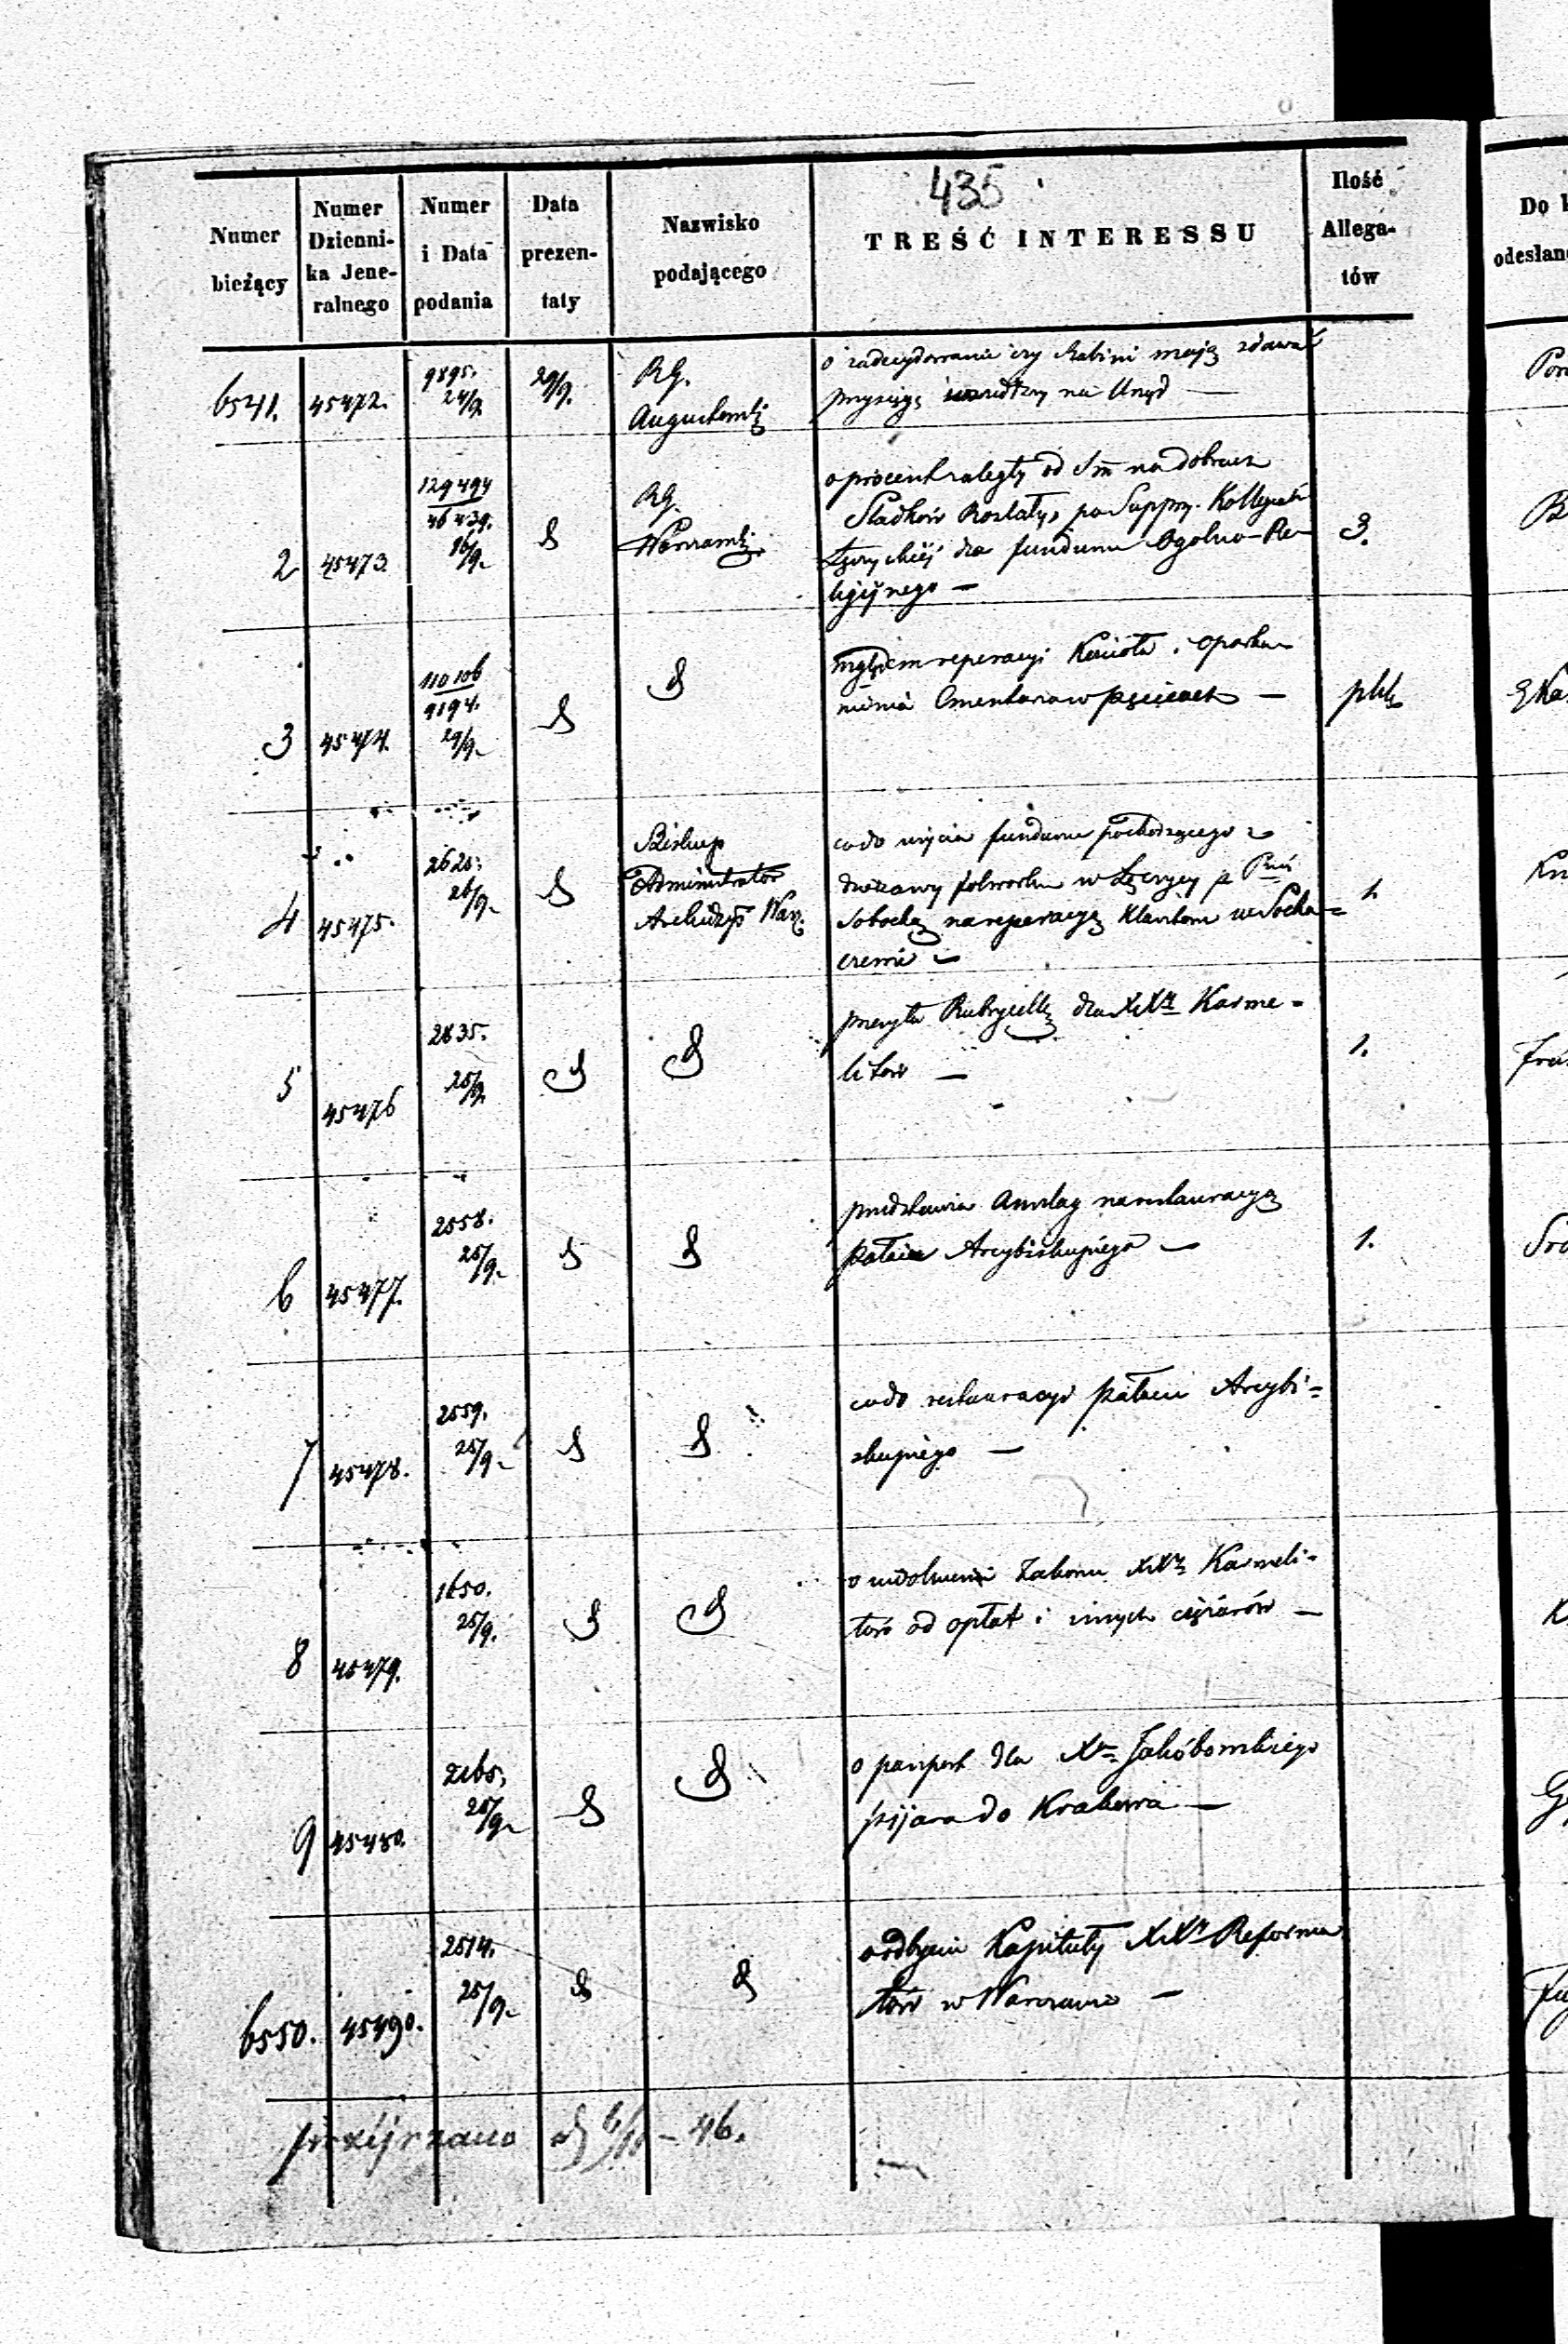 435
Numer bieżący
Numer Dzienni-ka Jene-ralnego
Numer i Data podania
Data prezen-taty
Nazwisko podającego
TREŚĆ INTERESSU
Ilość Allega-tów
Do
odesłan
6541. 45472. 9895. 24/9. 29/9. RG.
Augustowski
o zadecydowanie czy Rabini mają zdawać
przysięgę na Urząd —
2 45473. 129494 / 46439. 16/9. RG.
Warszawski
o procent zaległy od Sm na dobrach
Sladków Rozlazły, po Suppry. Kollegiacie
Łęczyckiéj dla funduszu Ogolno-Re-
ligijnego — 3.
3 45474. 110106 / 9194. 29/9.
względem reperacyi Kościoła i oparka-
nienia Cmentarza w Pęcicach —
4 45475. 2621. 26/9. Biskup
Administrator
Archidyec Warz.
co do użycia funduszu pochodzącego z
dzierżawy folwarku w Łęczycy p. Pnią
Sobocką na reperacyę Klasztoru w Socha-
czewie — 1.
5 45476 2835. 25/9.
przesyła Rubrycellę dla XXch Karme-
litów — 1.
6 45477. 2558. 25/9.
przedstawia Anszlag na restauracyą
Pałacu Arcybiskupiego — 1.
7 45478. 2559. 25/9.
co do restauracyi Pałacu Arcybi-
skupiego —
8 45479. 1650. 25/9.
o uwolnienie Zakonu XXch Karmeli-
tów od opłat i innych ciężarów —
9 45480. 2165. 25/9.
o paszport dla Xa Jakóbowskiego
pijara do Krakowa —
6550. 45490. 2514. 25/9.
o odbyciu Kapituły XXch Reforma
tów w Warszawie —
przejrzano d 6/10 - 46.